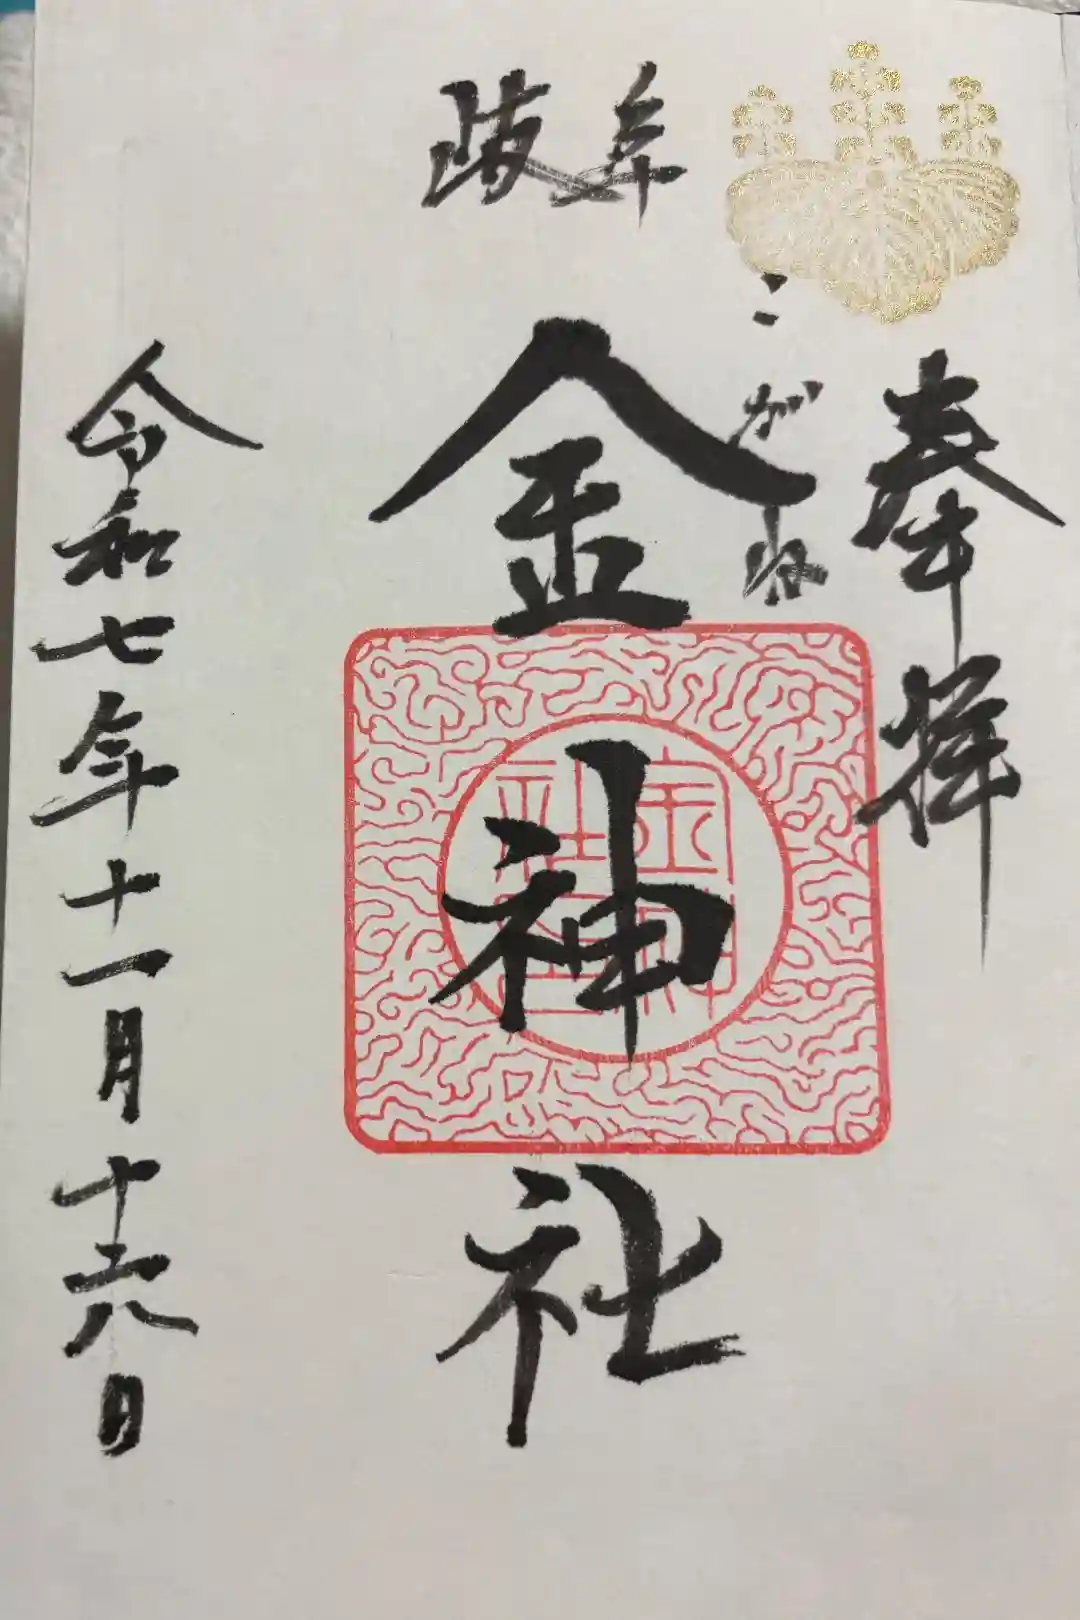 奉拝
こがね
岐阜
金神社
金神社印
令和七年十一月十六日